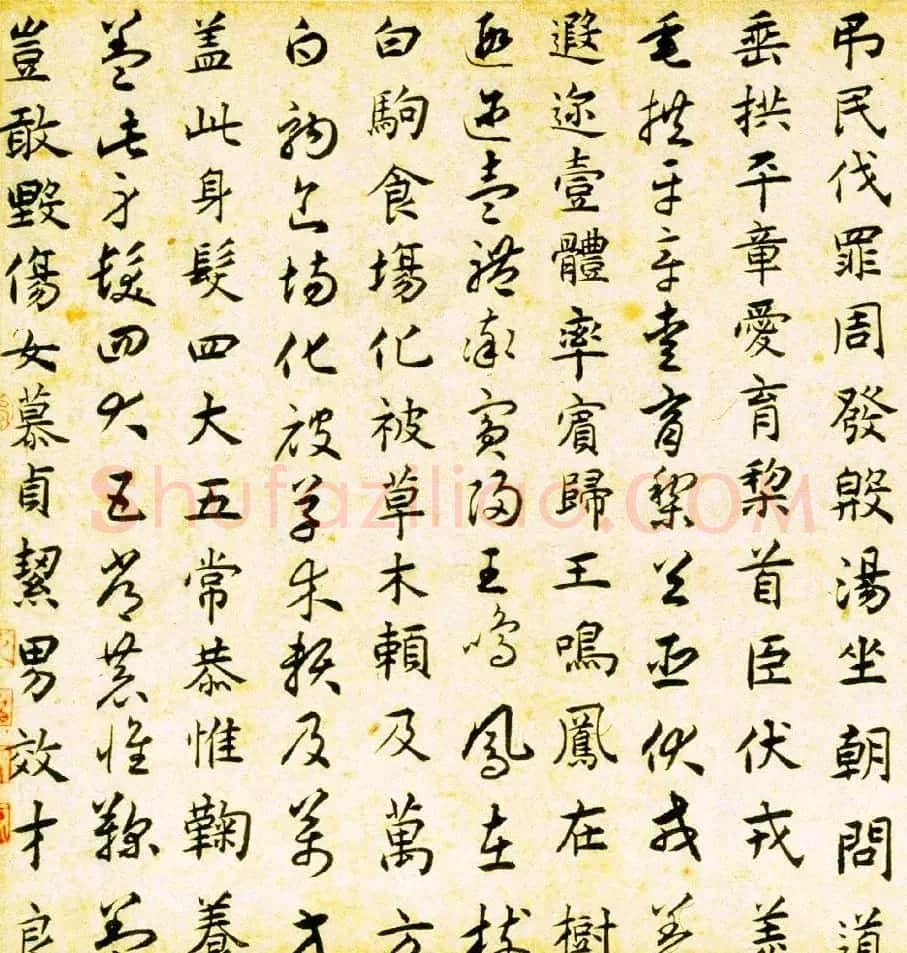 吊民伐罪周發殷湯坐朝問道
垂拱平章愛育黎首臣伏戎羌
垂拱平章愛育黎首臣伏戎羌
遐迩壹體率賓歸王鳴鳳在樹
遐迩壹體率賓歸王鳴鳳在樹
白駒食場化被草木賴及萬方
白駒食場化被草木賴及萬方
盖此身髮四大五常恭惟鞠養
盖此身髮四大五常恭惟鞠養
豈敢毀傷女慕貞絜男效才良
Shufaziliao.com